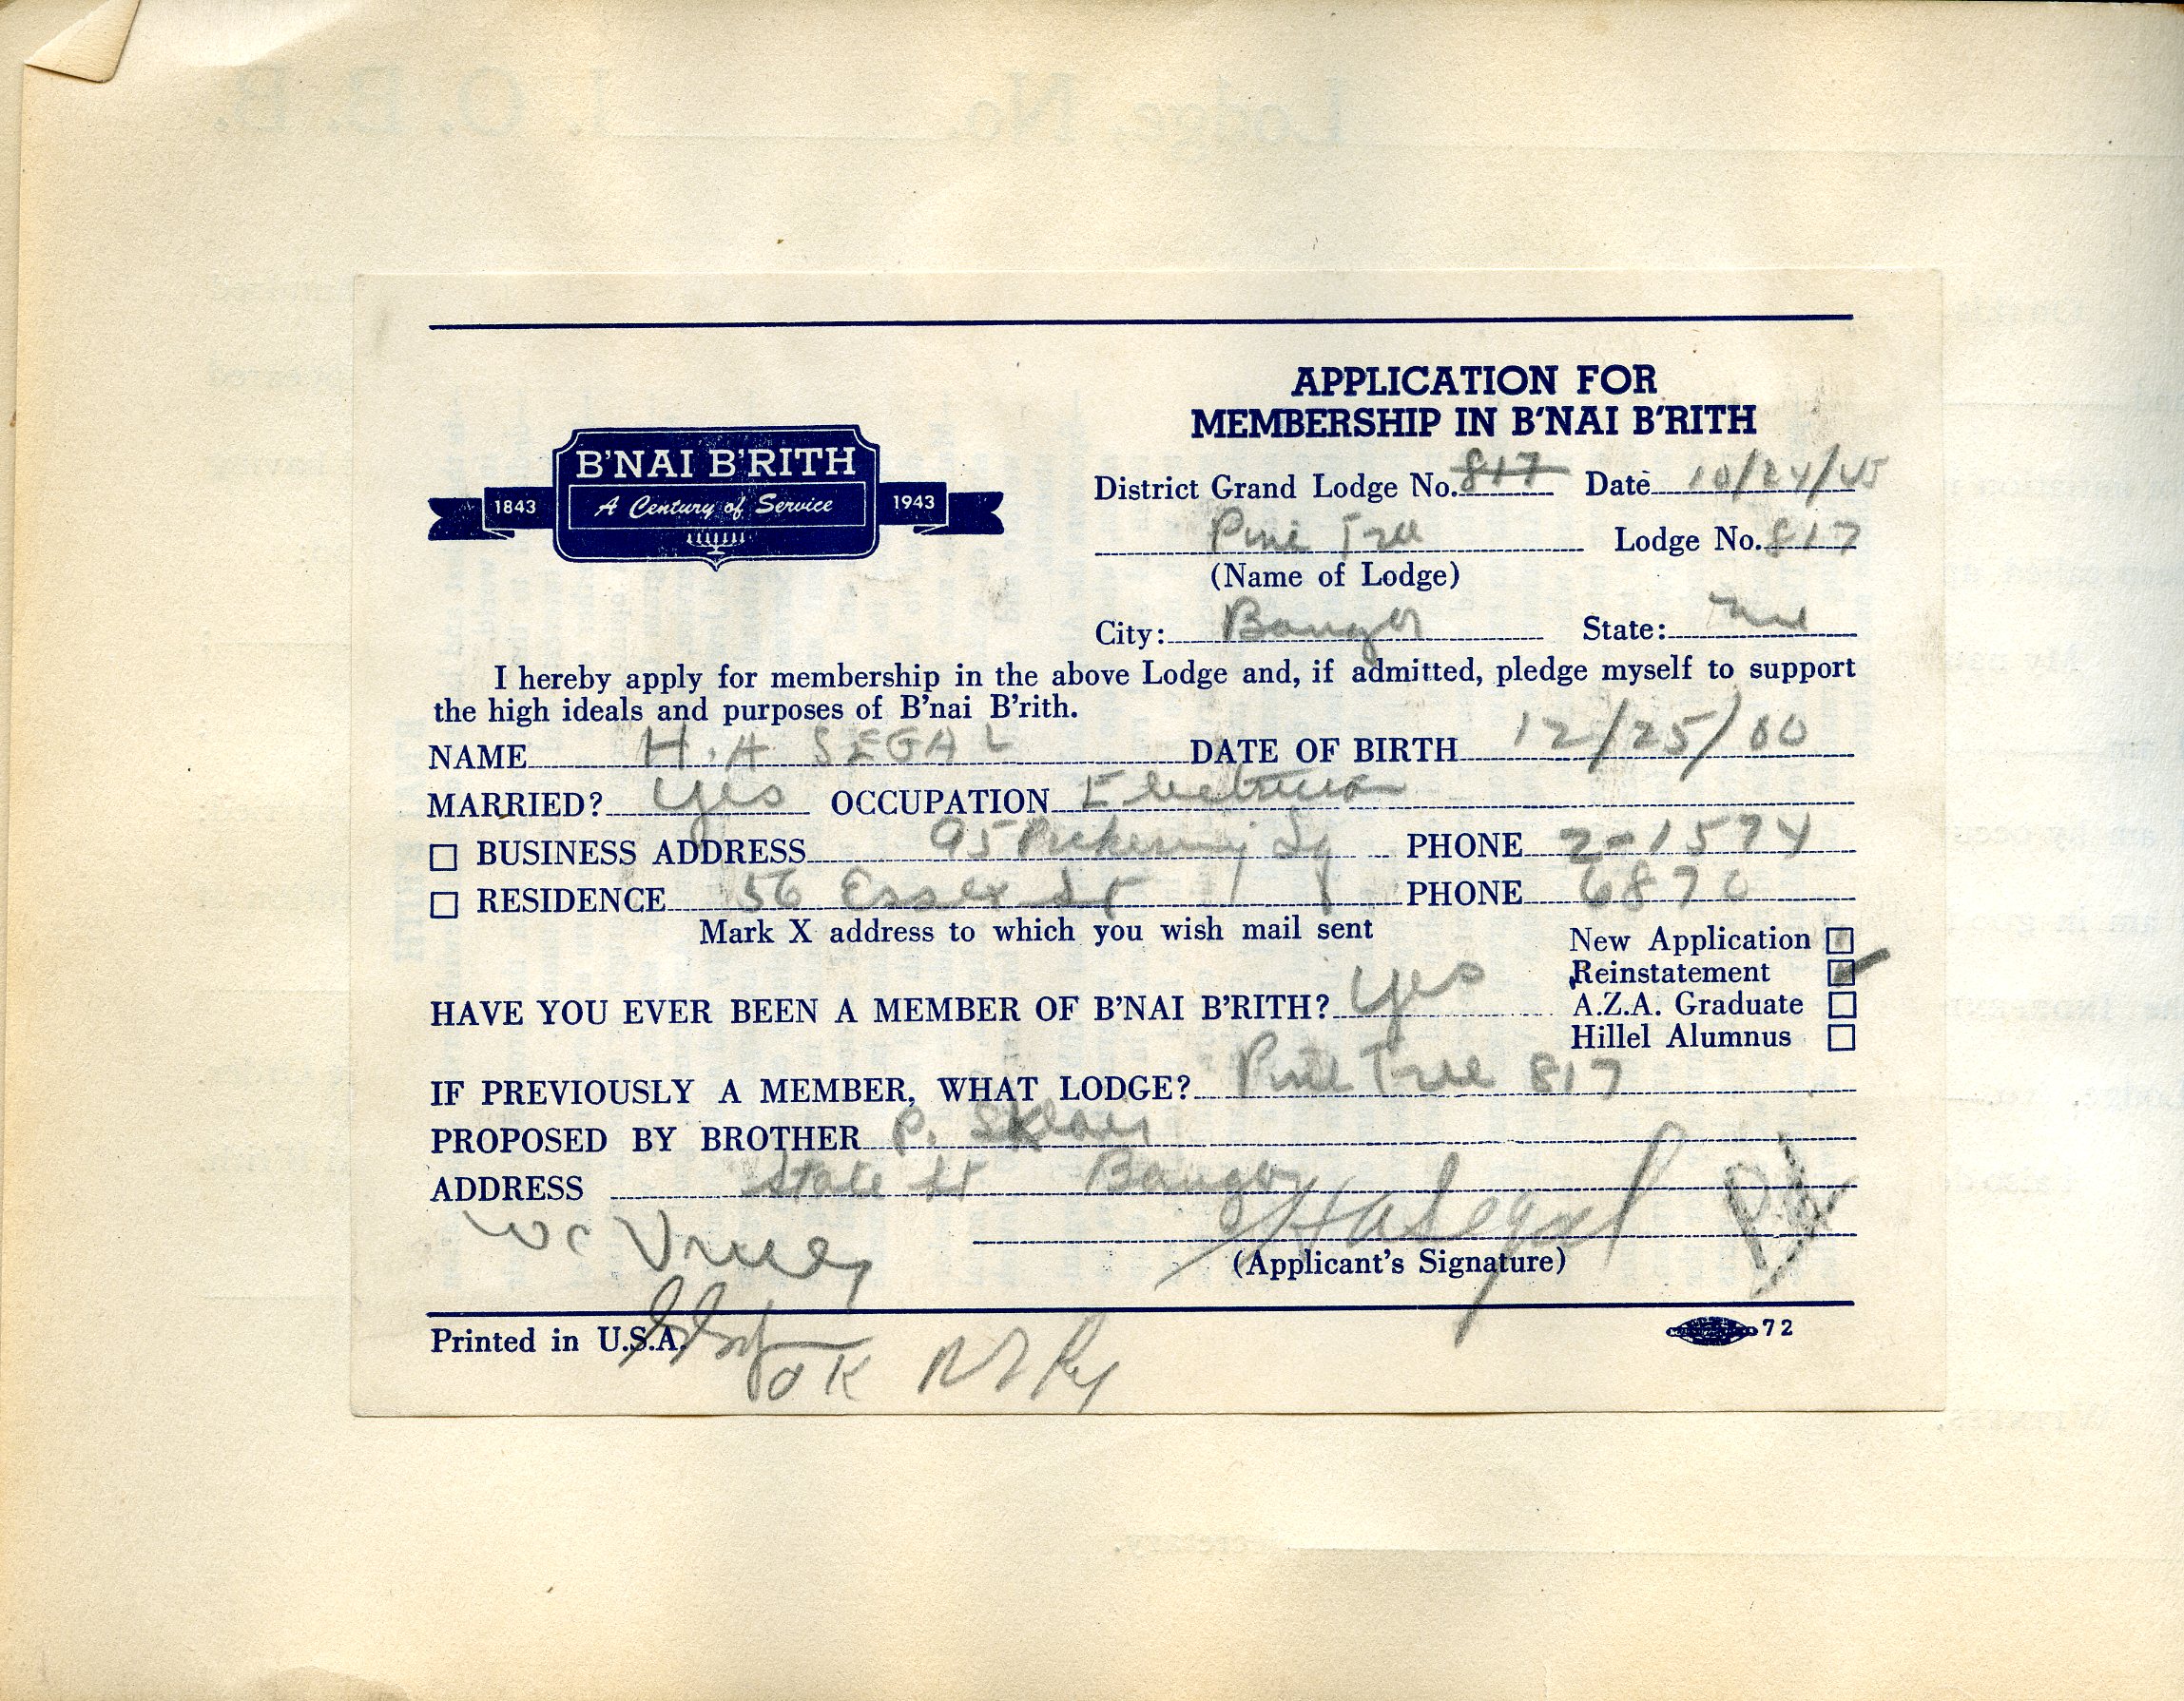 APPLICATION FOR
MEMBERSHIP IN B'NAI B'RITH
B'NAI B'RITH
1843 A Century of Service 1943
District Grand Lodge No. 817 Date 10/24/45
Pine Tree Lodge No. 817
(Name of Lodge)
City: Bangor State: Me
I hereby apply for membership in the above Lodge and, if admitted, pledge myself to support
the high ideals and purposes of B'nai B'rith.
NAME H. A SEGAL DATE OF BIRTH 12/25/00
MARRIED? yes OCCUPATION Electrician
BUSINESS ADDRESS 95 Pickering Sq PHONE 2-1574
RESIDENCE 56 Essex St PHONE 6870
Mark X address to which you wish mail sent
New Application
Reinstatement
A.Z.A. Graduate
Hillel Alumnus
HAVE YOU EVER BEEN A MEMBER OF B'NAI B'RITH? yes
IF PREVIOUSLY A MEMBER, WHAT LODGE? Pine Tree 817
PROPOSED BY BROTHER P. Sklar
ADDRESS State St Bangor
HASegal
(Applicant's Signature)
Printed in U.S.A.
72
OK
Lodge, No. I. O. B. B.